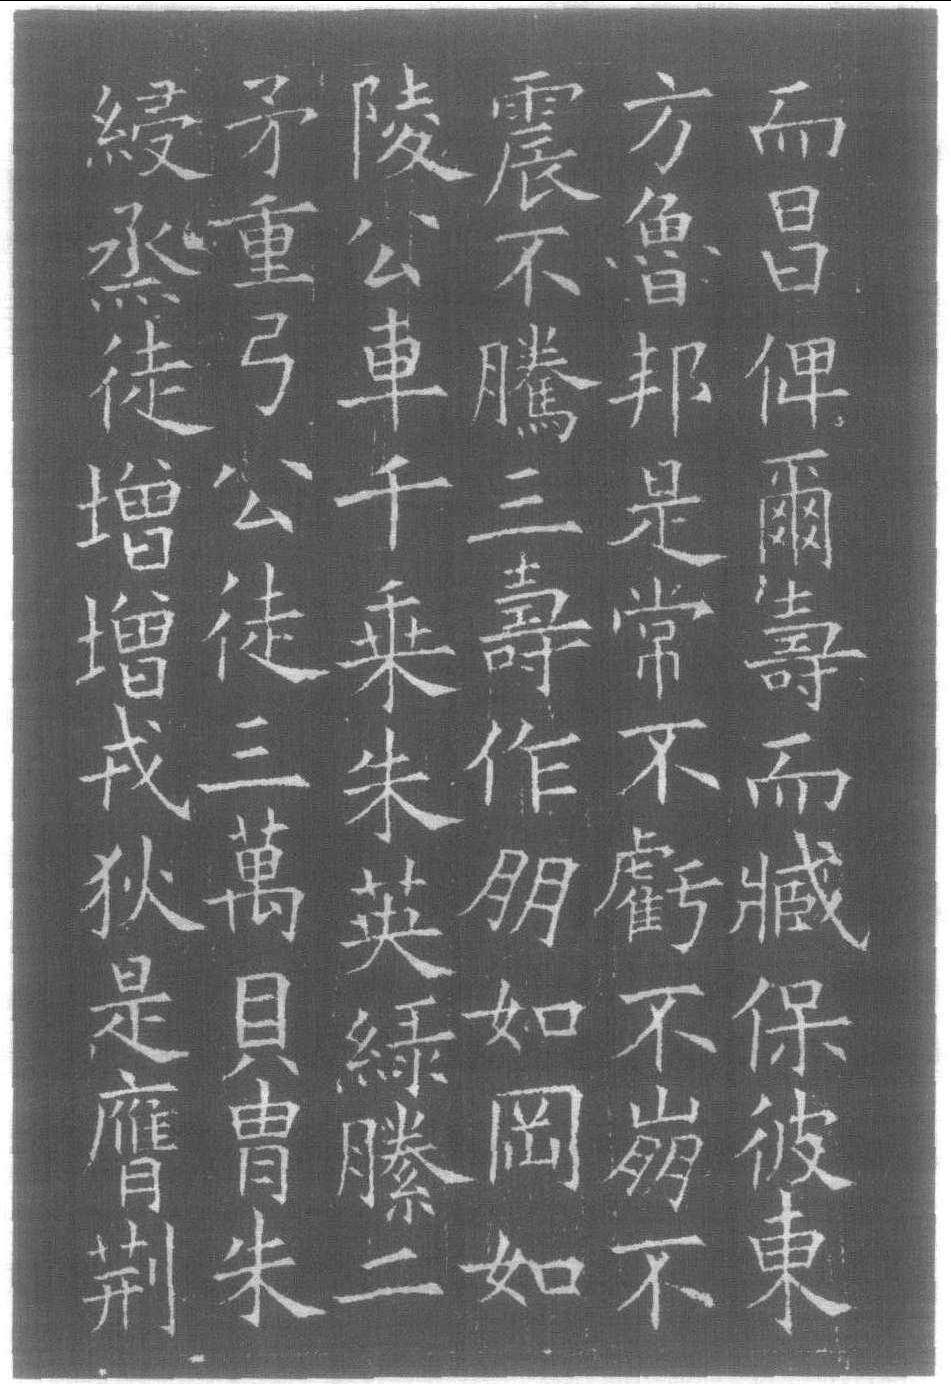 而昌俾爾壽而臧保彼東
方魯邦是常不虧不崩不
震不騰三壽作朋如岡如
陵公車千乘朱英綠縢二
矛重弓公徒三萬貝冑朱
綅烝徒增增戎狄是膺荆